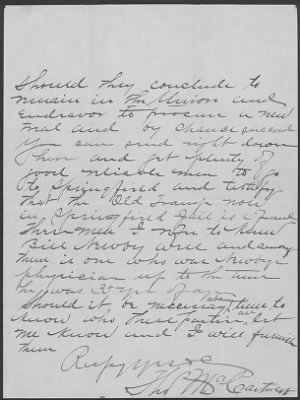 Should they conclude to
remain in the Union and
Endeavor to procure a new
trial and by chance succeed
you can send right down
there and get plenty of
good reliable men to go
to Springfield and testify
that the Old Tramp now
in Springfield Jail is a fraud
Three men I now to Know
Bill Newby well and among
them is one who was Newbys
physician up to the time
he was years of age
Should it be necessary at any time to
Know who these parties are let
me Know and I will furnish
them
Respy yrs &c
Thos McCartney